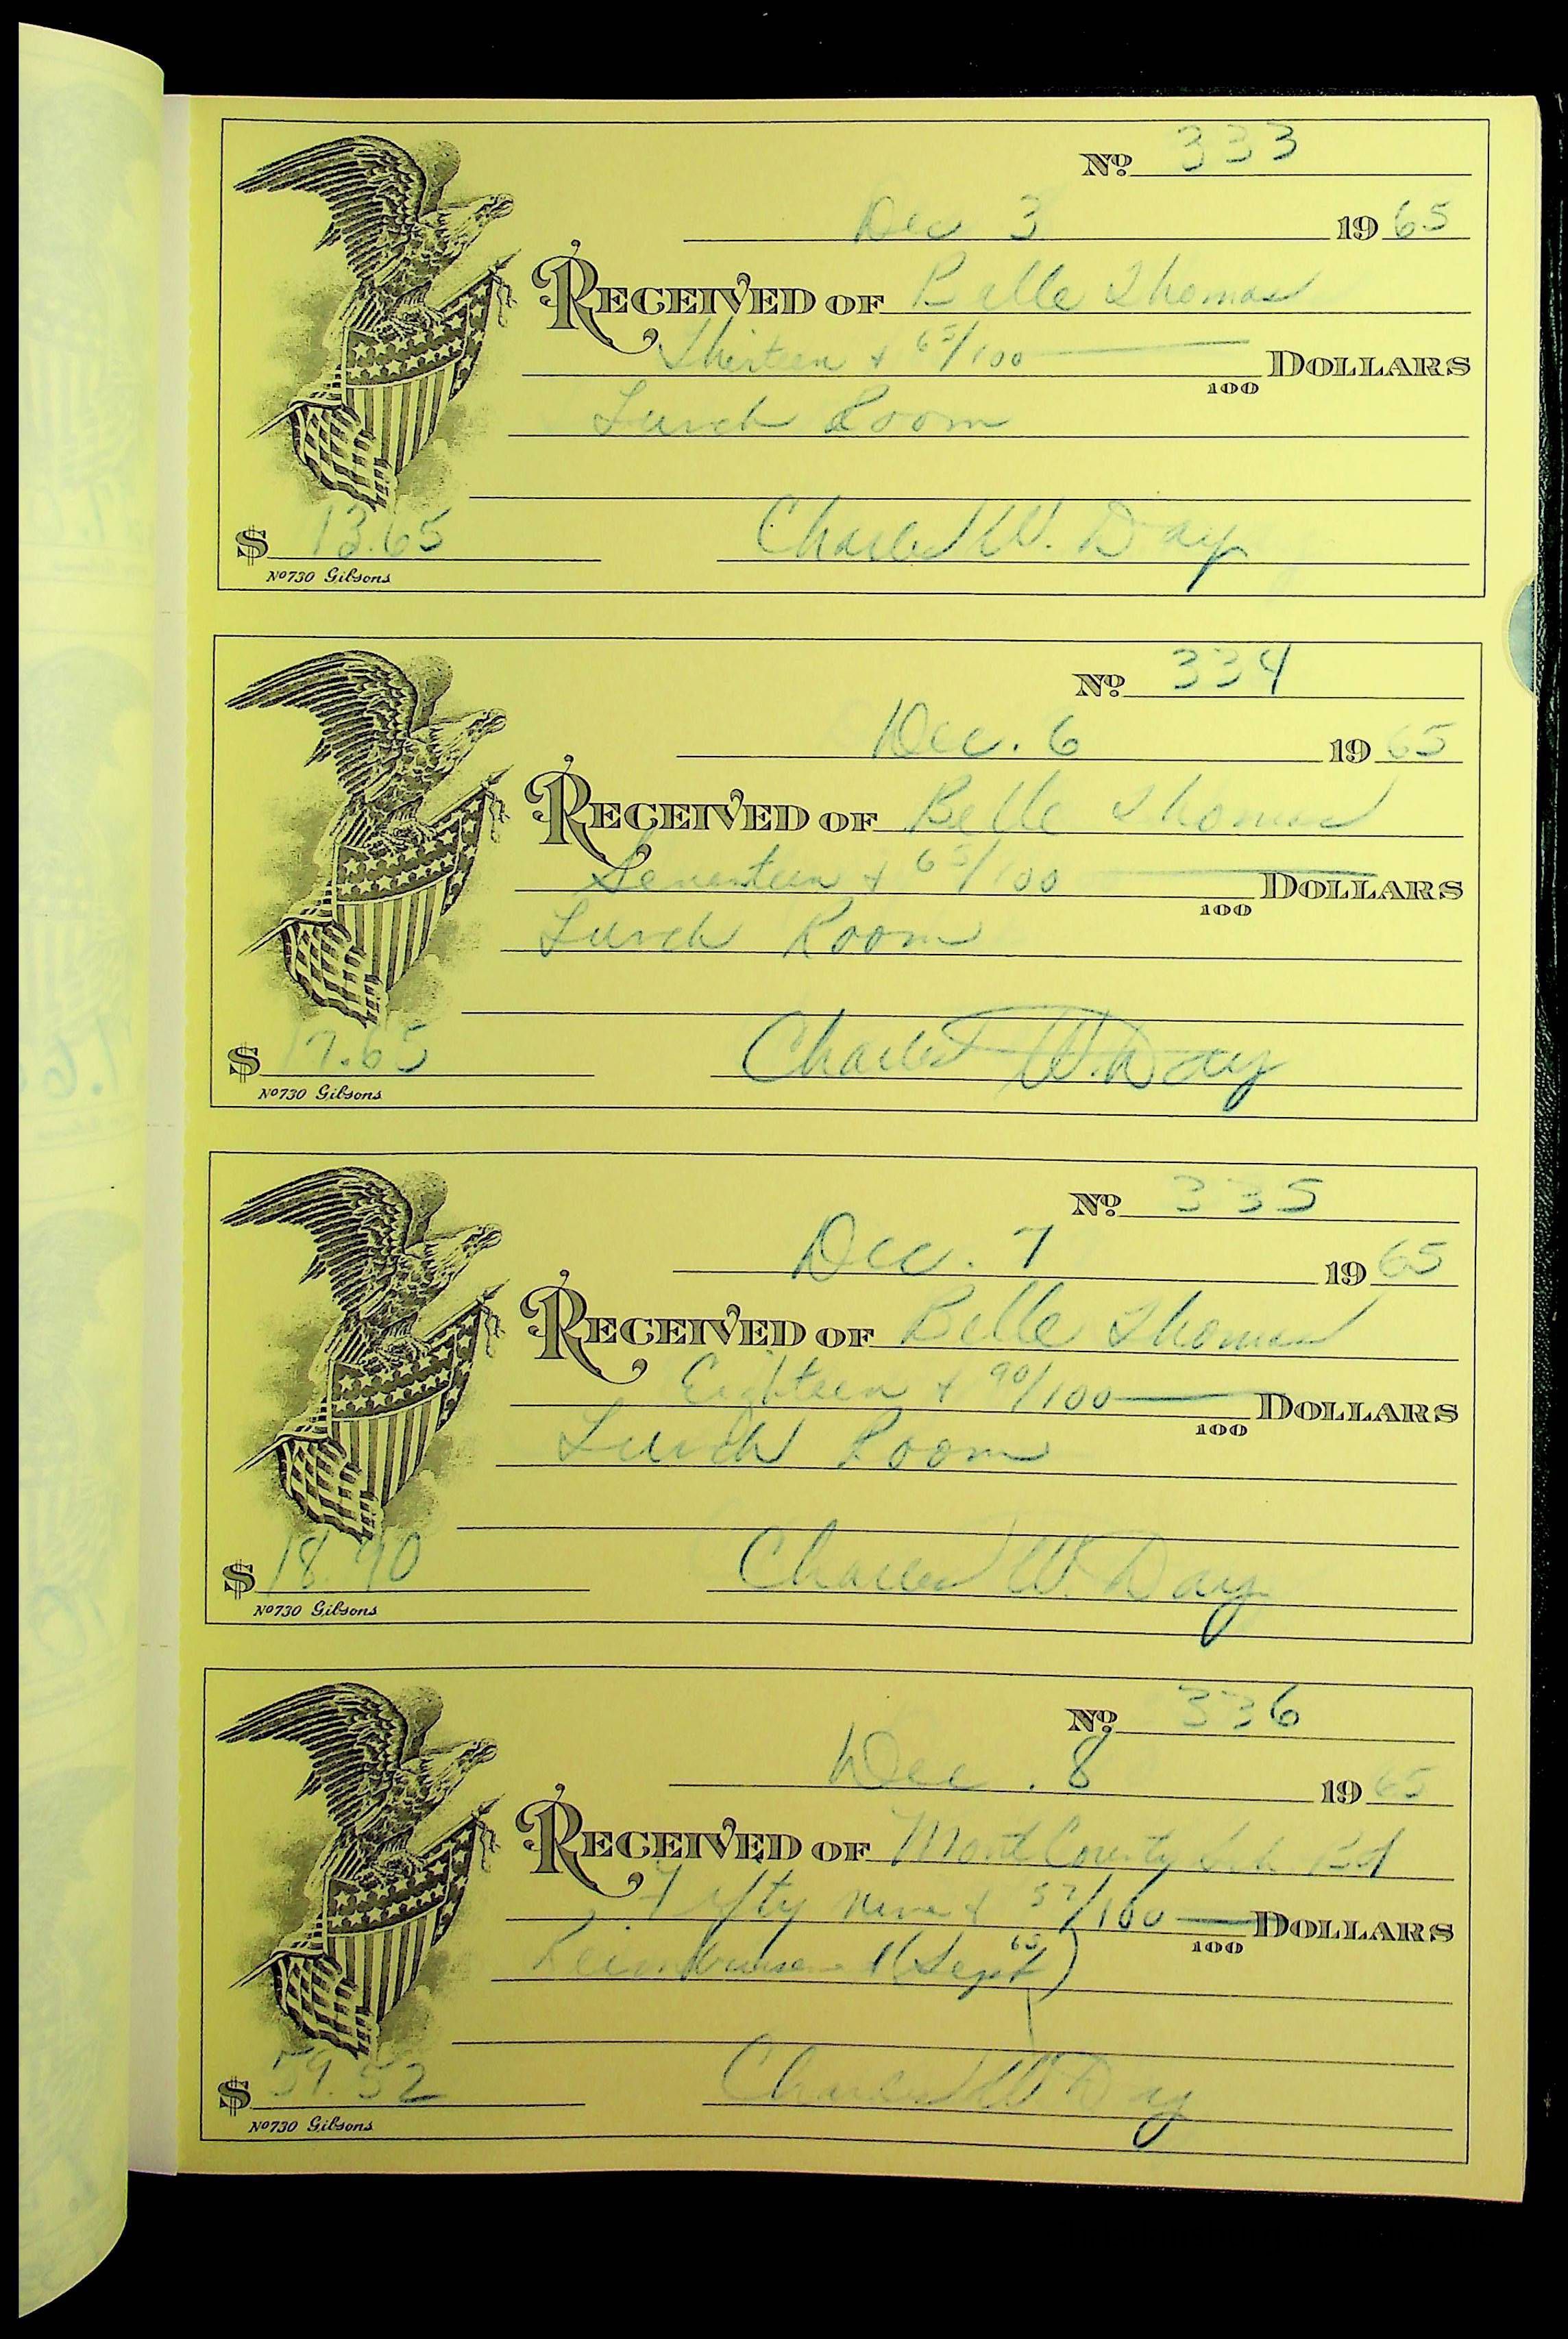 No. 333
Dec 3 1965
RECEIVED OF Belle Thomas
Thirteen + 65/100 DOLLARS
100
Lunch Room
$ 13.65 Charles W. Day
No 730 Gibsons
No. 334
Dec. 6 1965
RECEIVED OF Belle Thomas
Seventeen + 65/100 DOLLARS
100
Lunch Room
$ 17.65 Charles W. Day
No 730 Gibsons
No. 335
Dec. 7 1965
RECEIVED OF Belle Thomas
Eighteen + 90/100 DOLLARS
100
Lunch Room
$ 18.90 Charles W. Day
No 730 Gibsons
No. 336
Dec. 8 1965
RECEIVED OF Mont County Sch Bd
Fifty nine + 52/100 DOLLARS
100
(Sept 65)
$ 59.52 Charles W Day
No 730 Gibsons